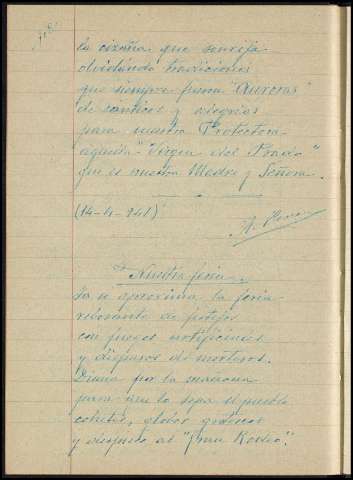 la cizaña que
olvidando tradiciones
que siempre fueron "Auroras"
de cánticos y alegrías
para nuestra Protectora
aquella "Virgen del Prado"
que es nuestra Madre y Señora.
(14-4-941)
"Nuestra feria".
Ya se aproxima la feria
rebosante de festejos
con fuegos artificiales
y disparos de morteros.
Diana por la mañana
para que lo sepa el pueblo
cohetes, globos grotescos
y después al "Gran Rodeo".